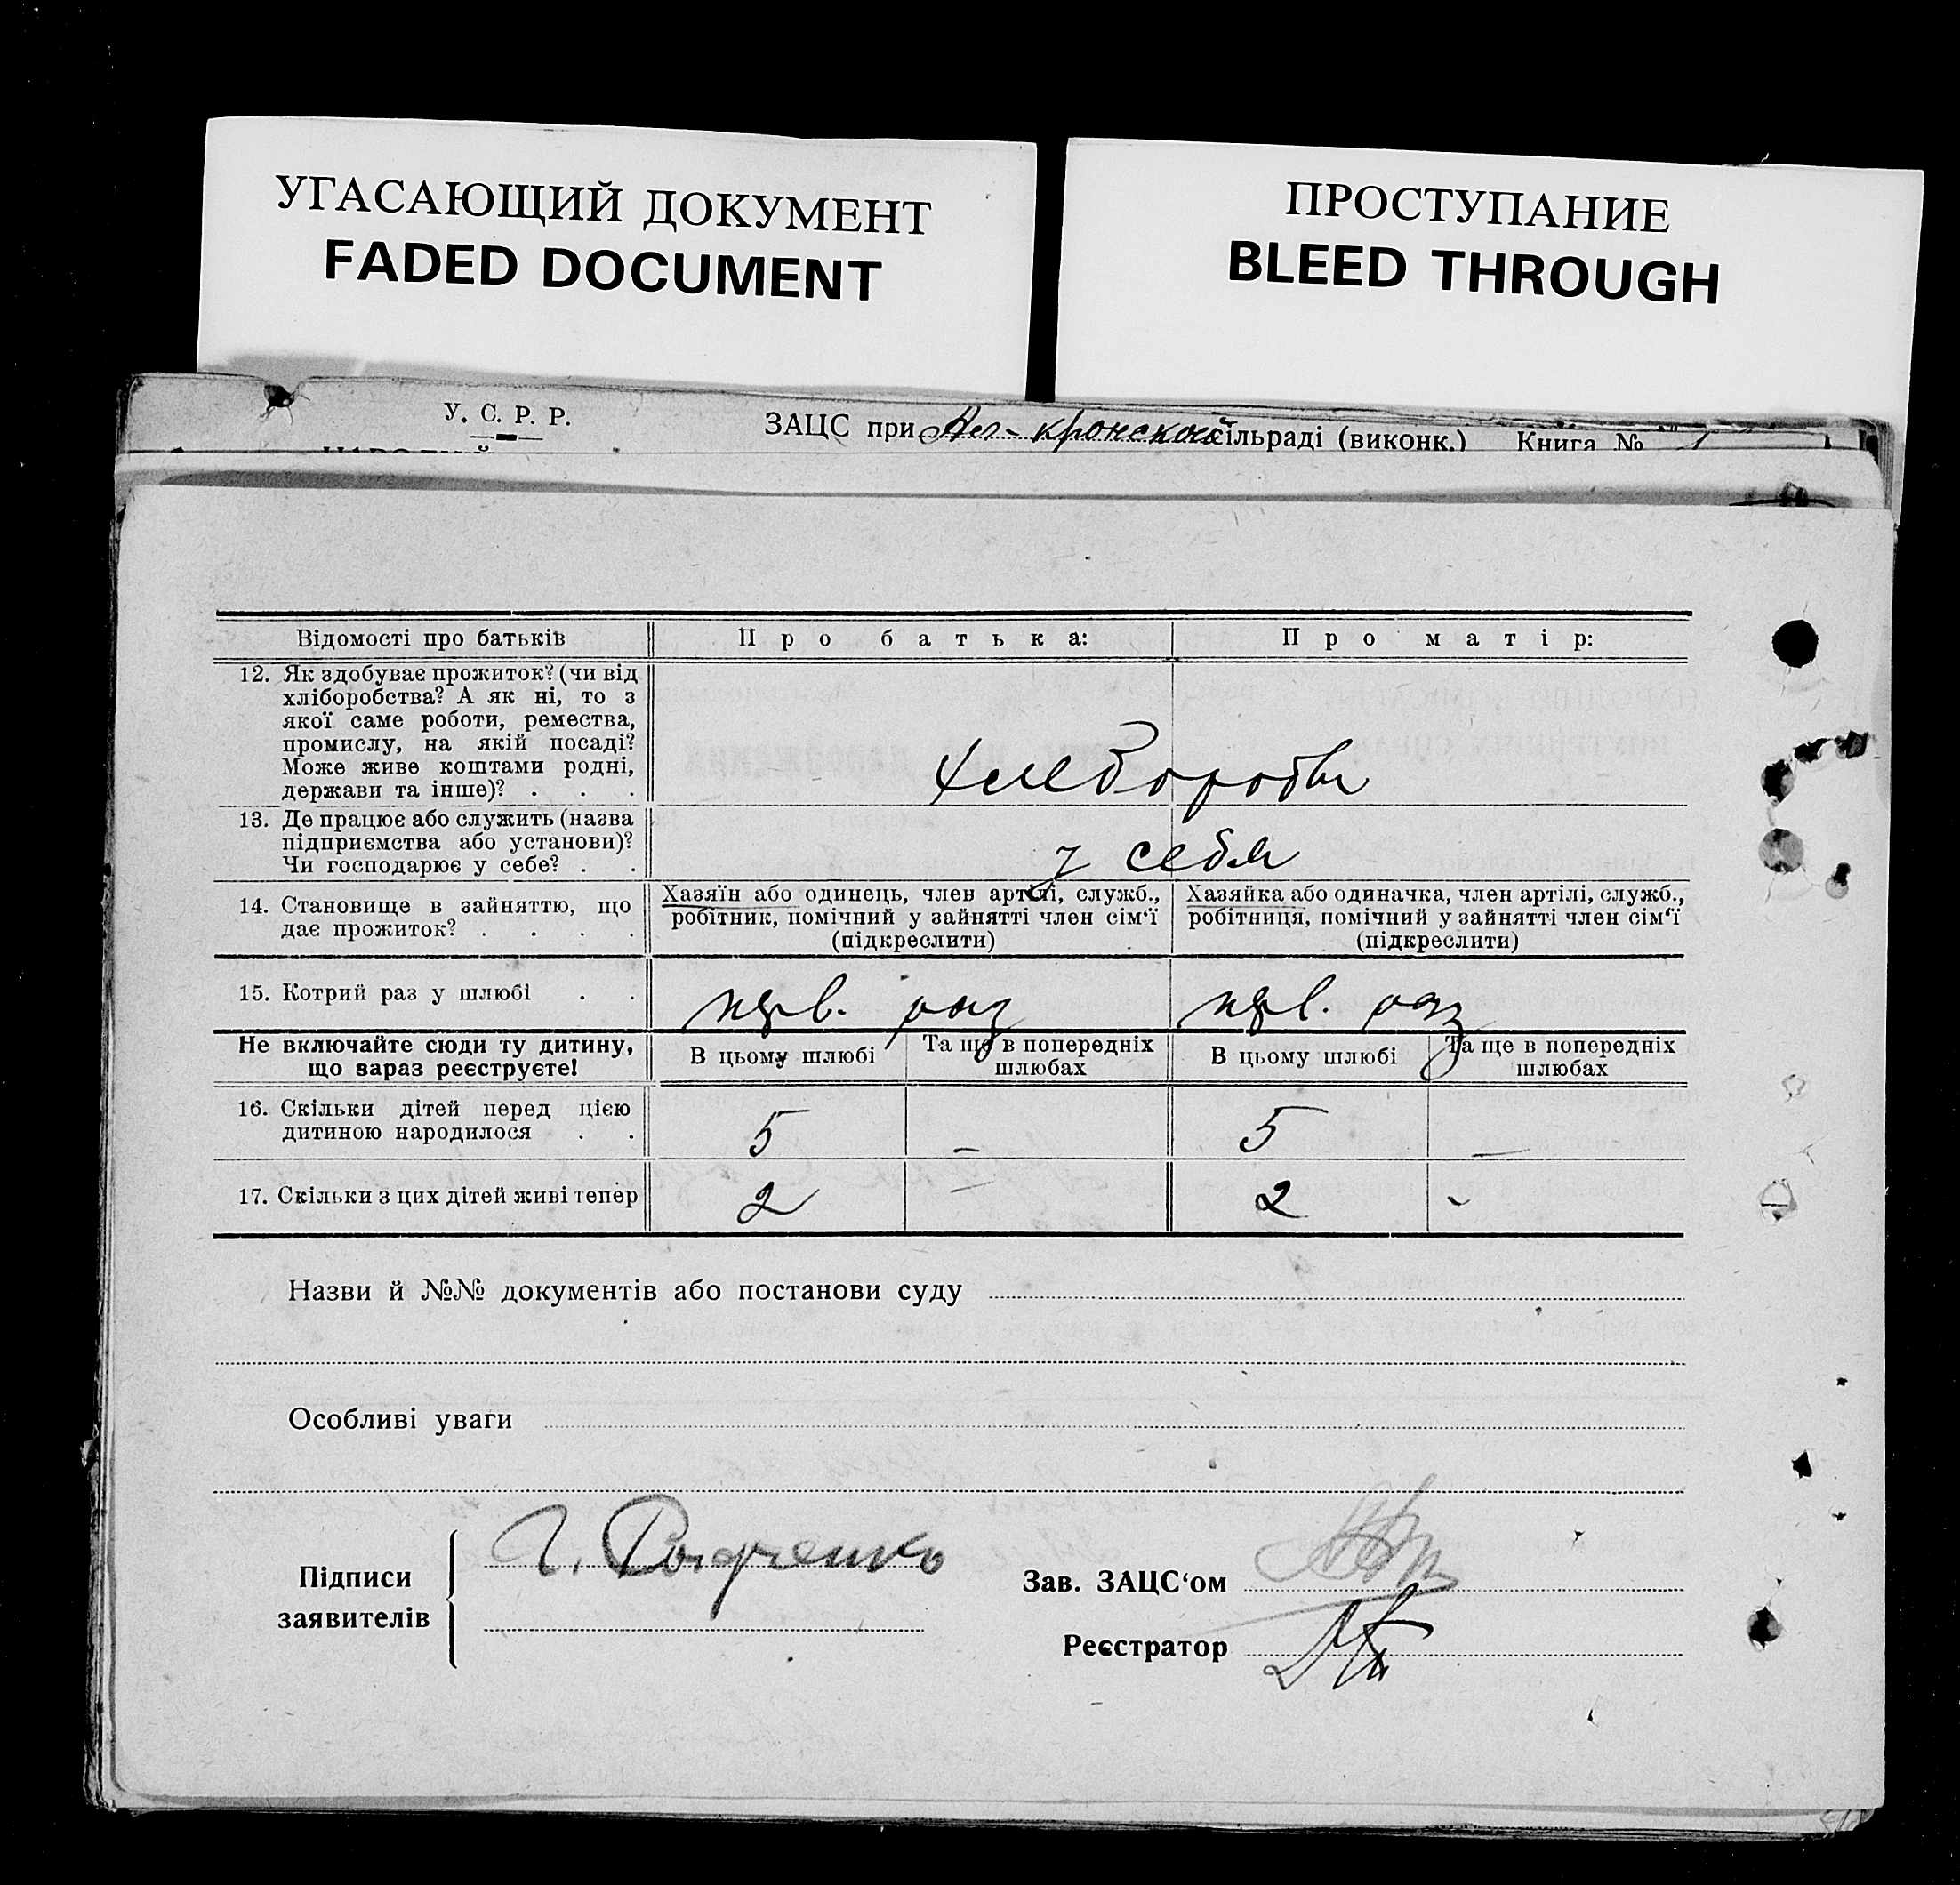 УГАСАЮЩИЙ ДОКУМЕНТ
FADED DOCUMENT
ПРОСТУПАНИЕ
BLEED THROUGH
У. С. Р. Р.
ЗАЦС при сільраді (виконк.) Книга №
Відомості про батьків
Про батька:
Про матір:
12. Як здобуває прожиток? (чи від
хліборобства? А як ні, то з
якої саме роботи, ремества,
промислу, на якій посаді?
Може живе коштами родні,
держави та інше)? . . .
13. Де працює або служить (назва
підприємства або установи)?
Чи господарює у себе? . .
у себя
14. Становище в зайняттю, що
дає прожиток? . . . .
Хазяїн або одинець, член артілі, служб.,
робітник, помічний у зайнятті член сім‘ї
(підкреслити)
Хазяйка або одиначка, член артілі, служб.,
робітниця, помічний у зайнятті член сім‘ї
(підкреслити)
15. Котрий раз у шлюбі . .
перв. раз
перв. раз
Не включайте сюди ту дитину,
що зараз реєструєте!
В цьому шлюбі
Та ще в попередніх
шлюбах
В цьому шлюбі
Та ще в попередніх
шлюбах
16. Скільки дітей перед цією
дитиною народилося . .
5 – 5 –
17. Скільки з цих дітей живі тепер
2 – 2 –
Назви й №№ документів або постанови суду
Особливі уваги
Підписи
заявителів
Зав. ЗАЦС‘ом
Реєстратор